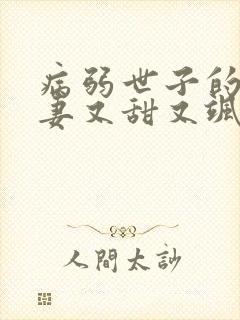 病弱世子的
妻又甜又飒
人間太訬